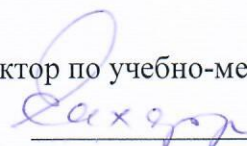 ктор по учебно-ме